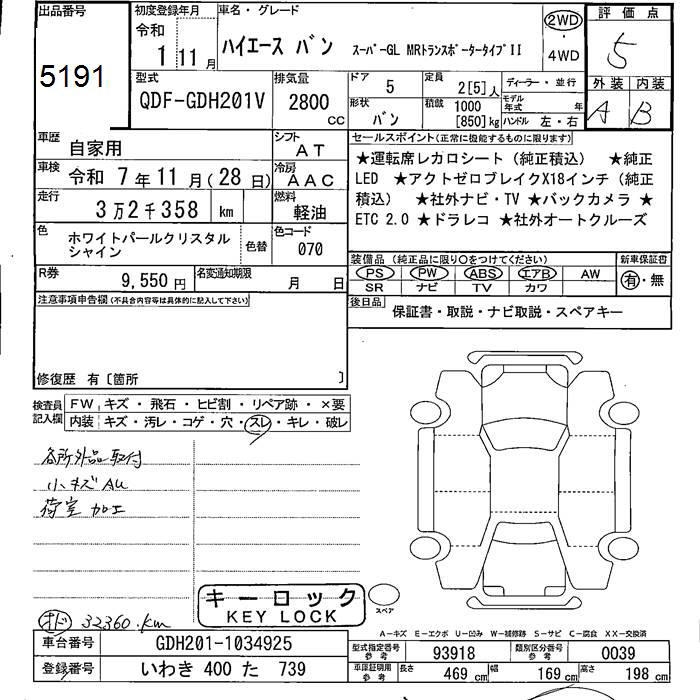 出品番号
5191
初度登録年月
令和
1 11 月
車名・グレード
ハイエース バン スーパーGL MRトランスポータータイプII
2WD
・
4WD
評価点
5
外装 内装
A B
型式
QDF-GDH201V
排気量
2800
cc
ドア
5
定員
2[5]人
ディーラー・並行
形状
バン
積載
1000
[850]kg
モデル年式 年
ハンドル 左・右
車歴
自家用
シフト
AT
車検
令和 7 年 11 月 ( 28 日)
冷房
AAC
走行
3 万 2 千 358 km
燃料
軽油
色
ホワイトパールクリスタル
シャイン
色替
色コード
070
R券
9,550 円
名変通知期限
月 日
セールスポイント(正常に機能するものに限ります)
★運転席レカロシート (純正積込) ★純正
LED ★アクトゼロブレイクX18インチ (純正
積込) ★社外ナビ・TV ★バックカメラ ★
ETC 2.0 ★ドラレコ ★社外オートクルーズ
装備品 (純正品に限り○をつけてください)
新車保証書
PS PW ABS エアB AW
SR ナビ TV カワ
有・無
後日品
保証書・取説・ナビ取説・スペアキー
注意事項申告欄(不具合内容等は具体的に記入して下さい)
修復歴 有〔箇所 〕
検査員
記入欄
FW キズ ・ 飛石 ・ ヒビ割 ・ リペア跡 ・ ×要
内装 キズ・汚レ・コゲ・穴・スレ・キレ・破レ
各所外品取付
小キズAU
荷室 加工
キーロック
KEY LOCK
スペア
オド 32360.km
A-キズ E-エクボ U-凹み W-補修跡 S-サビ C-腐食 XX-交換済
車台番号
GDH201-1034925
登録番号
いわき 400 た 739
型式指定番号
参考
93918
類別区分番号
参考
0039
車庫証明用
参考
長さ 469 cm 幅 169 cm 高さ 198 cm